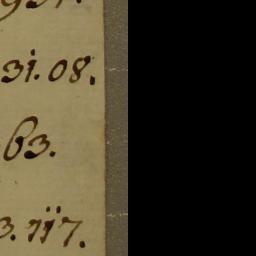 31. 08.
63.
3. 117.